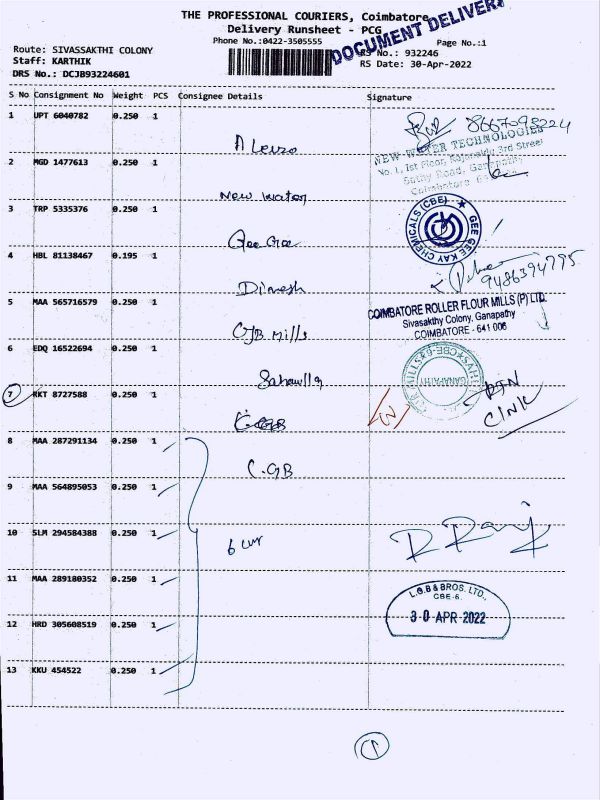 THE PROFESSIONAL COURIERS, Coimbatore
Delivery Runsheet - PCG
DOCUMENT DELIVERY
Phone No.:0422-3505555
Page No.:1
Route: SIVASAKTHI COLONY
RS No.: 932246
Staff: KARTHIK
RS Date: 30-Apr-2022
DRS No.: DCJB93224601
S No Consignment No Weight PCS Consignee Details Signature
1 UPT 6040782 0.250 1
8667098224
NEW WATER TECHNOLOGIES
No. 1, Ist Floor, Rajanaidu 3rd Street
Sathy Road, Ganapathy
Coimbatore
2 MGD 1477613 0.250 1 New Water
3 TRP 5335376 0.250 1 Gee Gee
GEE GEE KAY CHEMICALS (CBE)
4 HBL 81138467 0.195 1 Dinesh
9486394795
5 MAA 565716579 0.250 1 CJB Mills
COIMBATORE ROLLER FLOUR MILLS (P) LTD.
Sivasakthy Colony, Ganapathy
COIMBATORE - 641 006
6 EDQ 16522694 0.250 1
GANAPATHY
7 KKT 8727588 0.250 1
8 MAA 287291134 0.250 1 C.GB
9 MAA 564895053 0.250 1
10 SLM 294584388 0.250 1
11 MAA 289180352 0.250 1
L.G.B & BROS. LTD.,
CBE-6.
30 APR 2022
12 HRD 305608519 0.250 1
13 KKU 454522 0.250 1
1